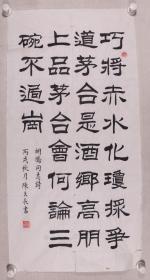 巧將赤水化瓊漿爭
道茅台是酒鄉高朋
上品茅台會何論三
碗不過崗
同志詩
丙戌秋月陳天長書